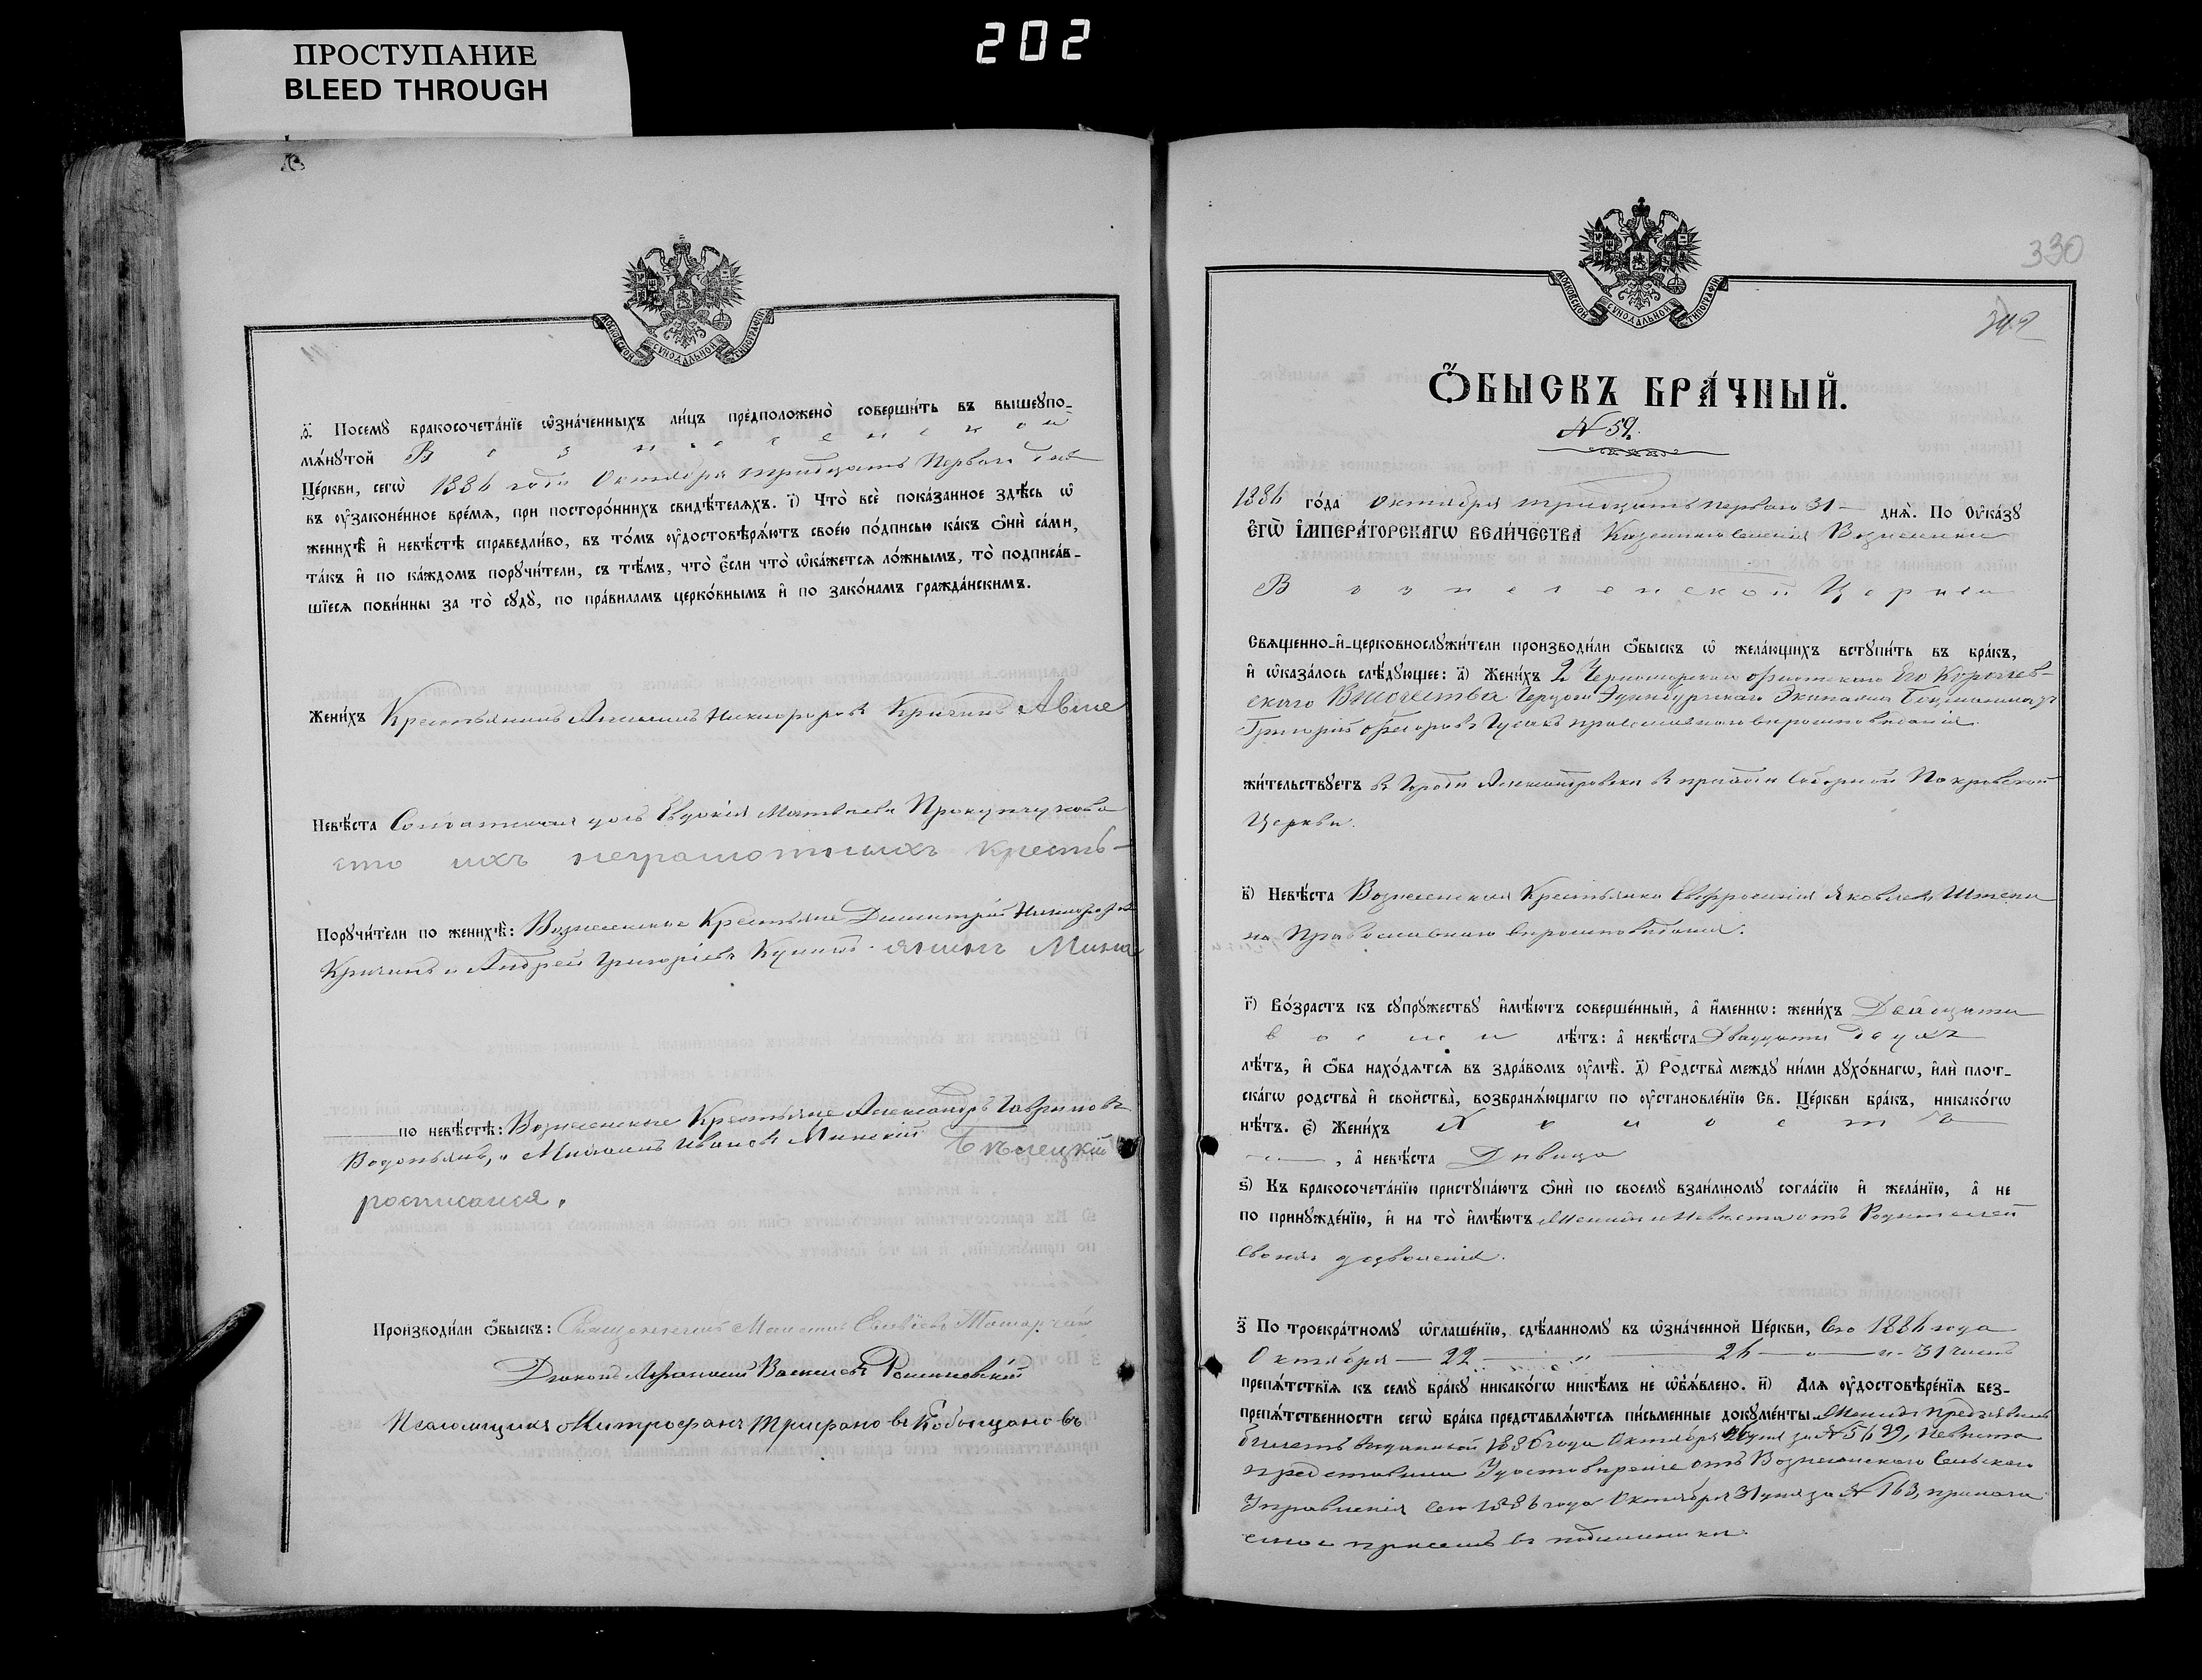 202
ПРОСТУПАНИЕ
BLEED THROUGH
МОСКОВСКОЙ СѴНОДАЛЬНОЙ ТИПОГРАФІИ
ѳ҃) Посемꙋ̀ бракосочета́нїе ѡ҆зна́ченныхъ ли́цъ предположено̀ соверши́ть въ вышеꙋпо-
мѧ́нꙋтой Вознесенской
Це́ркви, сегѡ̀ 1886 года Октября тридцать Перваго дня
въ ᲂу҆зако́ненное вре́мѧ, при посторо́ннихъ свидѣ́телѧхъ. і҃) Что̀ всѐ пока́занное здѣ́сь ѡ҆
женихѣ̀ и҆ невѣ́стѣ справедли́во, въ то́мъ ᲂу҆достовѣрѧ́ютъ свое́ю по́дписью ка́къ ѻ҆нѝ са́ми,
та́къ и҆ по ка́ждомъ порꙋчи́тели, съ тѣ́мъ, что̀ є҆́сли что̀ ѡ҆ка́жетсѧ ло́жнымъ, то̀ подписа́в-
шїесѧ пови́нны за то̀ сꙋдꙋ̀, по пра́виламъ церко́внымъ и҆ по зако́намъ гражда́нскимъ.
Жени́хъ Крестьянинъ Никифоровъ Кричунъ
Невѣ́ста Солдатская дочь Евдокія Матвѣева
ихъ неграмотныхъ кресть-
Порꙋчи́тели по женихѣ̀: Вознесенскіе Крестьяне Димитрій Никифоровъ
Кричунъ и Андрей Григоріевъ янинъ Мина
по невѣ́стѣ: Вознесенскіе Крестьяне Александръ Гавриловъ
Водопьянъ, и Ивановъ Минскій Бѣлецкій
росписался.
Производи́ли ѻ҆́быскъ: Священникъ
Діаконъ Афанасій Васильевъ
Псаломщикъ Митрофанъ Трифановъ
330
МОСКОВСКОЙ СѴНОДАЛЬНОЙ ТИПОГРАФІИ
Ѻ҆́БЫСКЪ БРА́ЧНЫЙ.
N 59.
1886 го́да Октября тридцать перваго 31 днѧ̀. По ᲂу҆ка́зꙋ
є҆гѡ̀ і҆мпера́торскагѡ вели́чества Казеннаго селенія Вознесенки
Вознесенской Церкви
Свѧще́нно-и҆-церковнослꙋжи́тели производи́ли ѻ҆́быскъ ѡ҆ жела́ющихъ встꙋпи́ть въ бра́къ,
и҆ ѡ҆каза́лось слѣ́дꙋющее: а҃) Жени́хъ 2 Черноморскаго флотскаго Его Королев-
скаго Высочества Герцога Эдинбургскаго Экипажа
Григорій Федоровъ Гусакъ православнаго вѣроисповѣданія.
жи́тельствꙋетъ въ Городѣ Александровскѣ въ приходѣ Соборной Покровской
Церкви.
в҃) Невѣ́ста Вознесенская Крестьянка Евфросинія Яковлева
на Православнаго вѣроисповѣданія.
г҃) Во́зрастъ къ сꙋпрꙋ́жествꙋ и҆мѣ́ютъ соверше́нный, а҆ и҆́менно: жени́хъ Двадцати
восьми лѣ́тъ: а҆ невѣ́ста Двадцати двухъ
лѣ́тъ, и҆ ѻ҆́ба нахо́дѧтсѧ въ здра́вомъ ᲂу҆мѣ̀. д҃) Родства̀ междꙋ ни́ми дꙋхо́внагѡ, и҆лѝ плот-
ска́гѡ родства̀ и҆ свойства̀, возбранѧ́ющагѡ по ᲂу҆становле́нїю Св. Це́ркви бра́къ, никако́гѡ
нѣ́тъ. є҃) Жени́хъ Холостъ
, а҆ невѣ́ста Дѣвица
ѕ҃) Къ бракосочета́нїю пристꙋпа́ютъ ѻ҆нѝ по своемꙋ̀ взаи́мномꙋ согла́сїю и҆ жела́нїю, а҆ не
по принꙋжде́нїю, и҆ на то̀ и҆мѣ́ютъ Женихъ и Невѣста отъ Родителей
своихъ дозволенія.
з҃ По троекра́тномꙋ ѡ҆глаше́нїю, сдѣ́ланномꙋ въ ѡ҆зна́ченной Це́ркви, Сего 1886 года
Октября — 22 — " — 26 — " — и — 31 чиселъ
препѧ́тствїѧ къ семꙋ̀ бра́кꙋ никако́гѡ никѣ́мъ не ѡ҆б̾ѧ́влено. и҃) Длѧ ᲂу҆достовѣре́нїѧ без-
препѧ́тственности сегѡ̀ бра́ка представлѧ́ютсѧ пи́сьменные докꙋме́нты Женихъ предъявилъ
билетъ выданный 1886 года Октября 26 дня за N 5699, Невѣста
представила Удостовѣреніе отъ Вознесенскаго Сельскаго
Управленія Сего 1886 года Октября 31 дня за N 163,